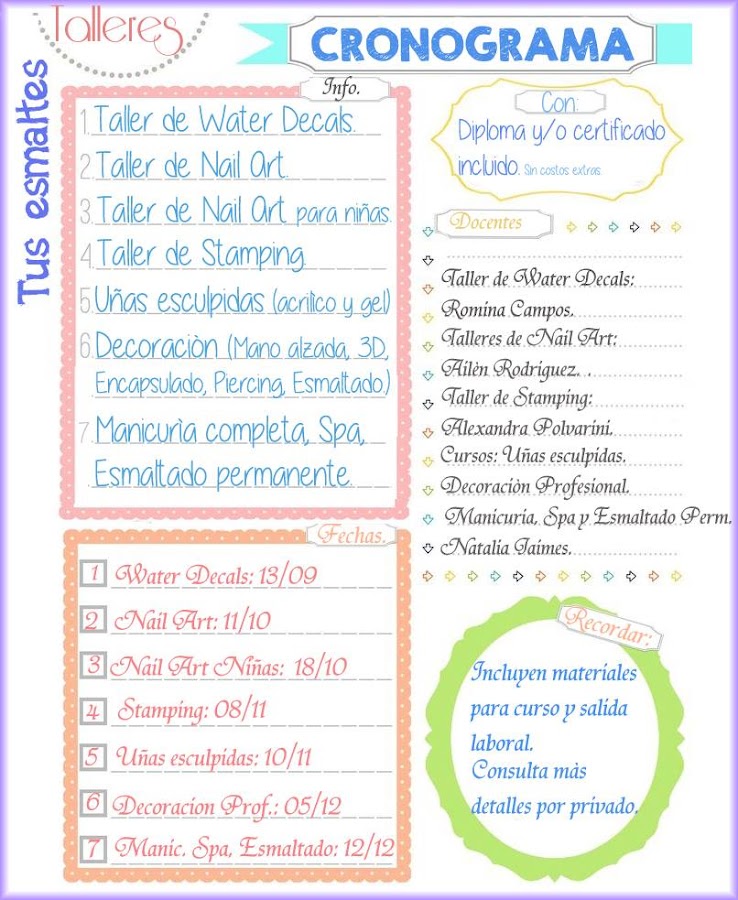 Talleres
CRONOGRAMA
Tus esmaltes
Info.
1 Taller de Water Decals.
2 Taller de Nail Art.
3 Taller de Nail Art para niñas.
4 Taller de Stamping
5 Uñas esculpidas (acrilico y gel)
6 Decoraciòn (Mano alzada, 3D,
Encapsulado, Piercing, Esmaltado)
7 Manicurìa completa, Spa,
Esmaltado permanente.
Con:
Diploma y/o certificado
incluido. Sin costos extras
Docentes
Taller de Water Decals:
Romina Campos.
Talleres de Nail Art:
Ailèn Rodriguez. .
Taller de Stamping:
Alexandra Polvarini.
Cursos: Uñas esculpidas.
Decoraciòn Profesional.
Manicuria, Spa y Esmaltado Perm.
Natalia Jaimes.
Fechas.
1 Water Decals: 13/09
2 Nail Art: 11/10
3 Nail Art Niñas: 18/10
4 Stamping: 08/11
5 Uñas esculpidas: 10/11
6 Decoracion Prof.: 05/12
7 Manic. Spa, Esmaltado: 12/12
Recordar:
Incluyen materiales
para curso y salida
laboral.
Consulta màs
detalles por privado.